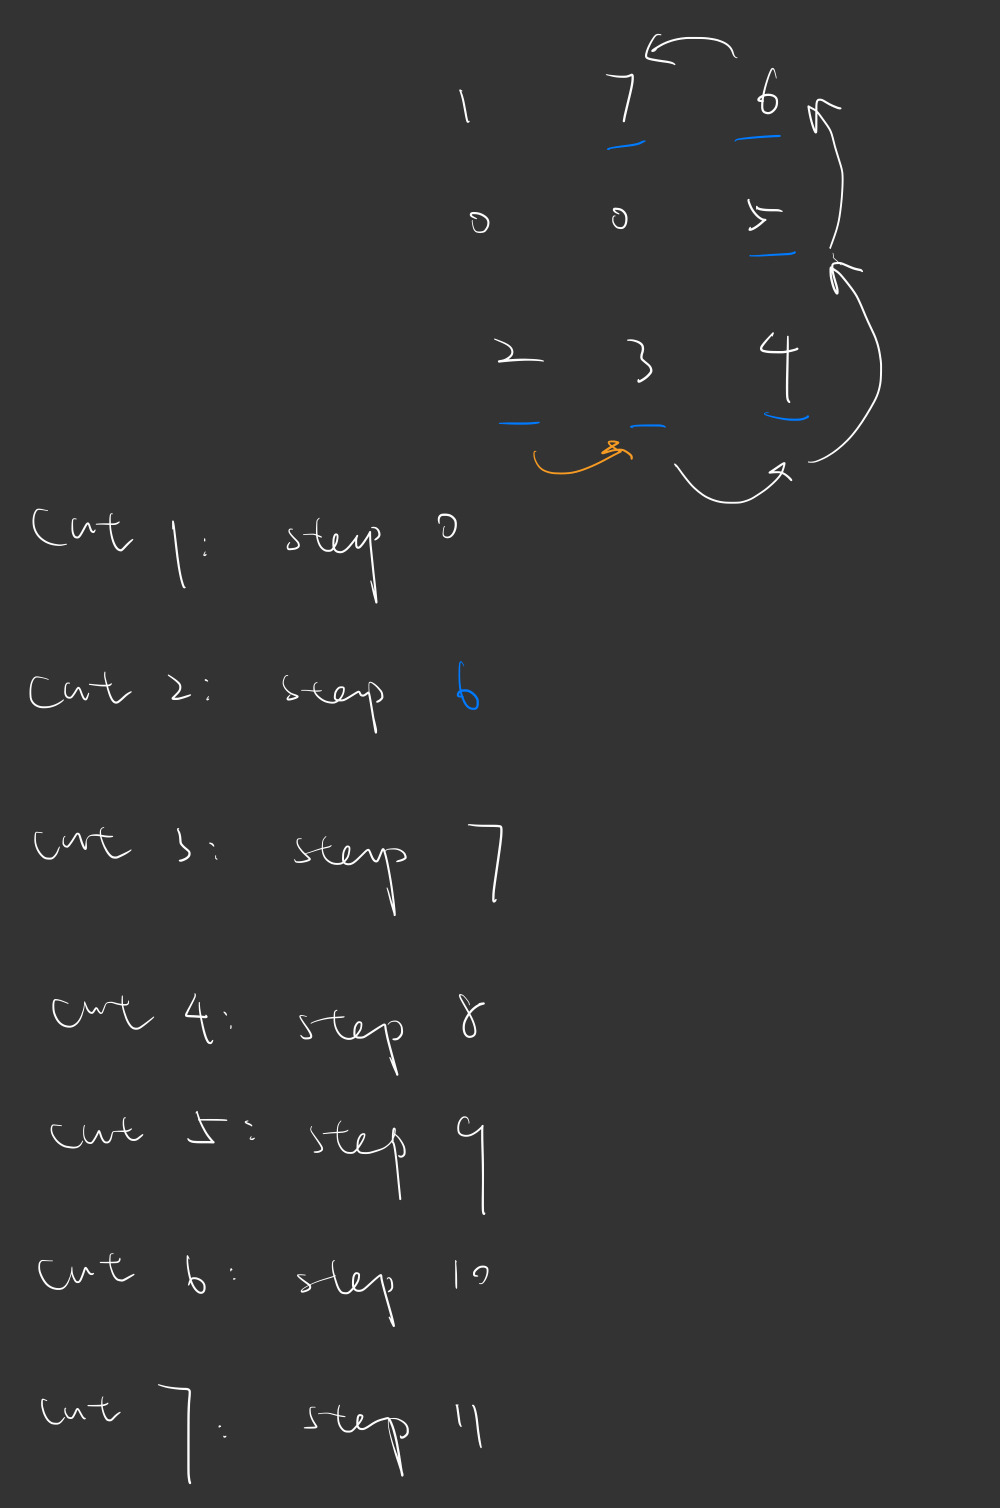 1 7 6
0 0 5
2 3 4
cut 1: step 0
cut 2: step 6
cut 3: step 7
cut 4: step 8
cut 5: step 9
cut 6: step 10
cut 7: step 11